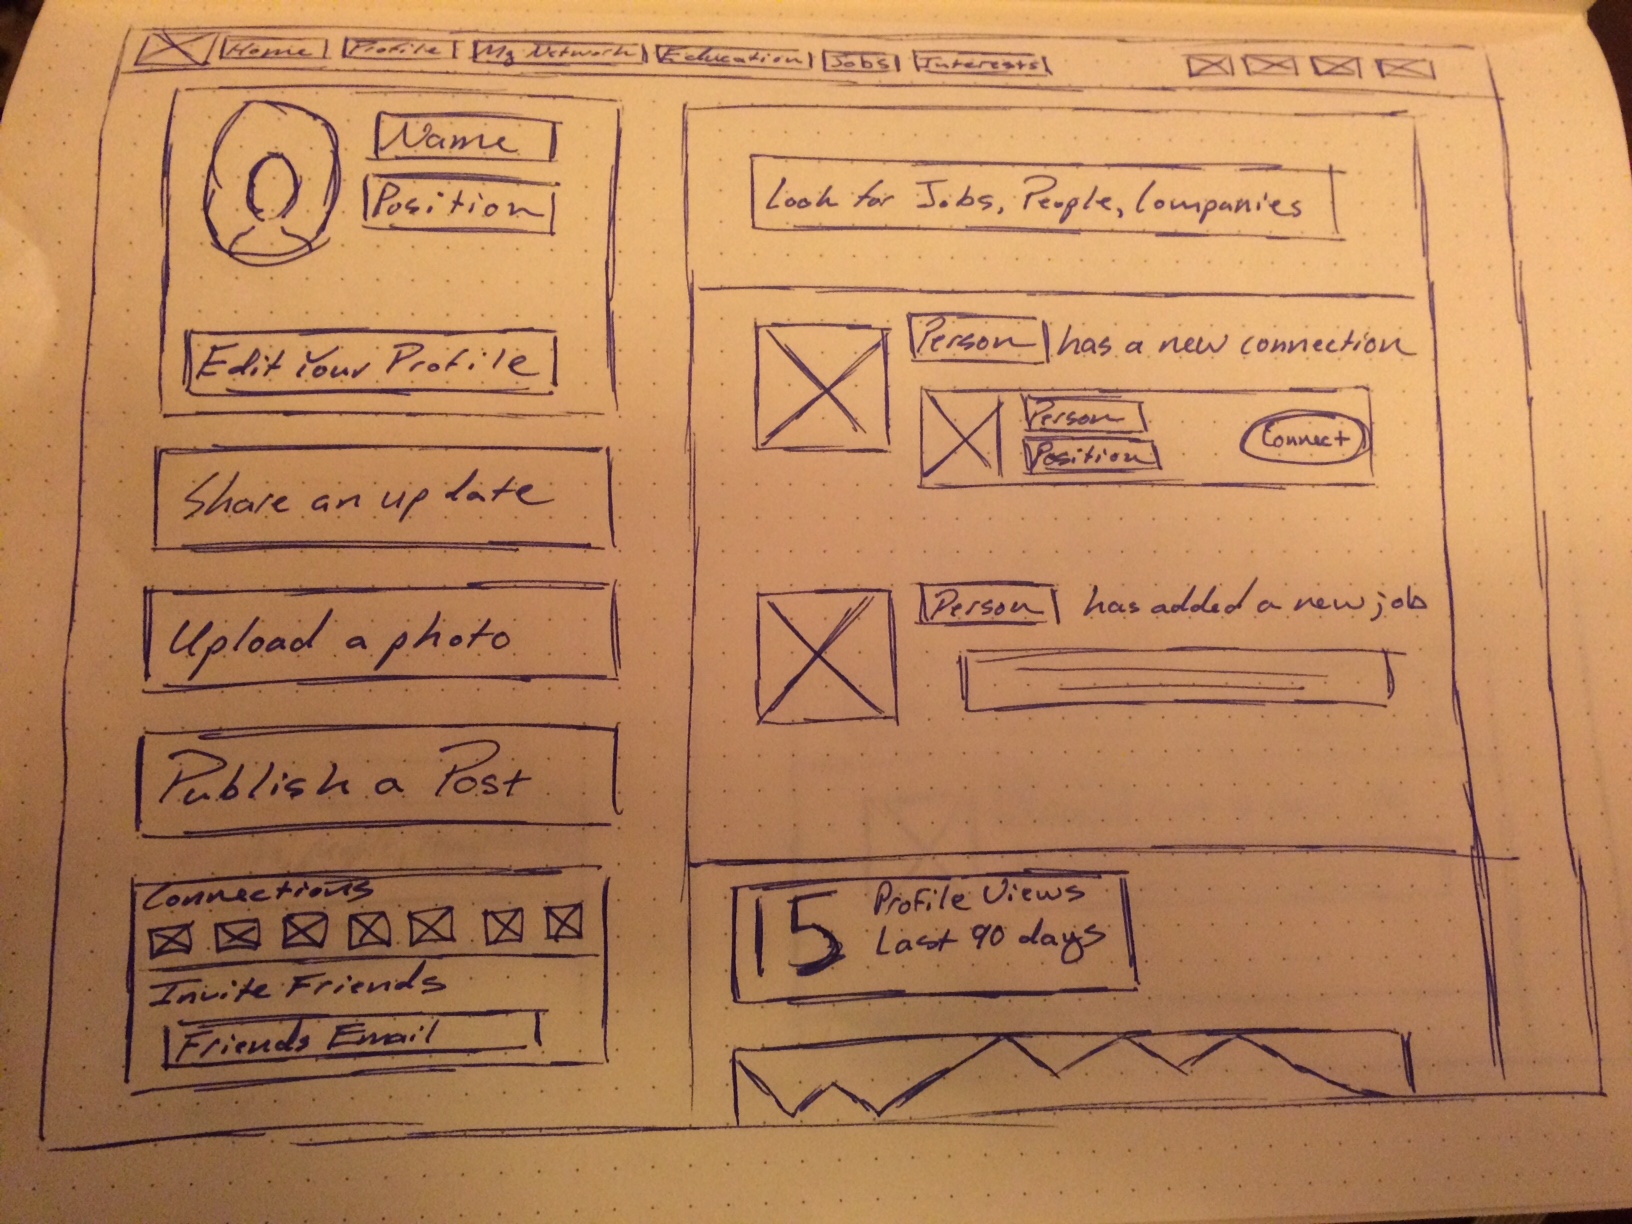 Home Profile My Network Education Jobs Interests
Name
Position
Edit Your Profile
Share an update
Upload a photo
Publish a Post
Connections
Invite Friends
Friends Email
Look for Jobs, People, Companies
Person has a new connection
Person
Position
Connect
Person has added a new job
15
Profile Views
Last 90 days